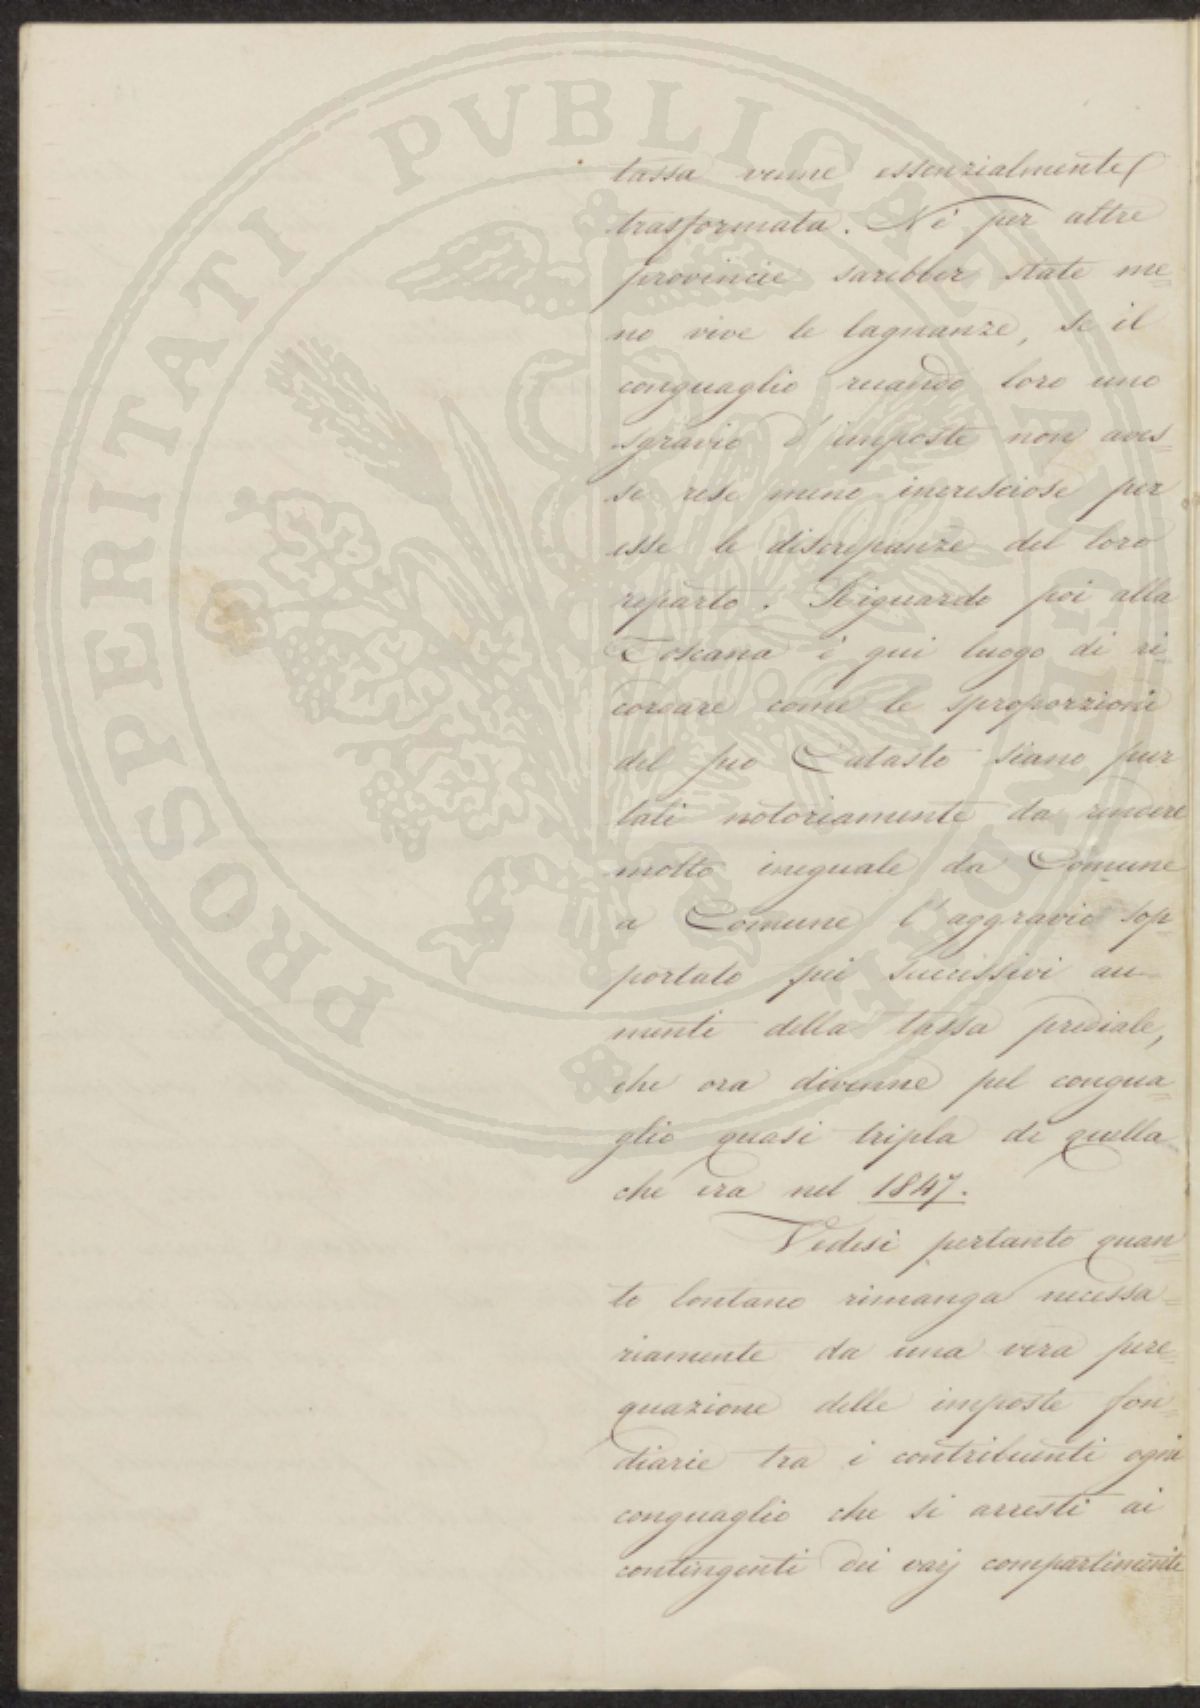 tassa venne essenzialmente
trasformata. Nè per altre
provincie sarebber state me=
no vive le lagnanze, se il
conguaglio recando loro uno
sgravio d'imposte non aves=
se rese meno incresciose per
esse le discrepanze del loro
reparto. Riguardo poi alla
Toscana è qui luogo di ri=
cordare come le sproporzioni
del suo Catasto siano pur
tali notoriamente da rendere
molto ineguale da Comune
a Comune l'aggravio sop
portato pei successivi au=
menti della tassa prediale,
che ora divenne pel congua=
glio quasi tripla di quella
che era nel 1847.
Vedesi pertanto quan=
to lontano rimanga necessa=
riamente da una vera pere=
quazione delle imposte fon=
diarie tra i contribuenti ogni
conguaglio che si arresti ai
contingenti dei varj compartimenti
PROSPERITATI PVBLICAE AVGENDAE